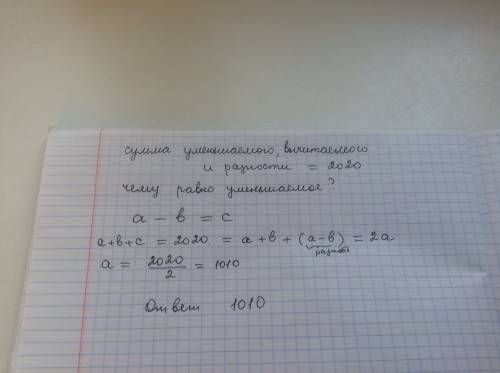 сумма уменьшаемого, вычитаемого
и разности = 2020
чему равно уменьшаемое?
a - b = c
a+b+c = 2020 = a+b+(a-b) = 2a
разность
a = 2020/2 = 1010
Ответ 1010